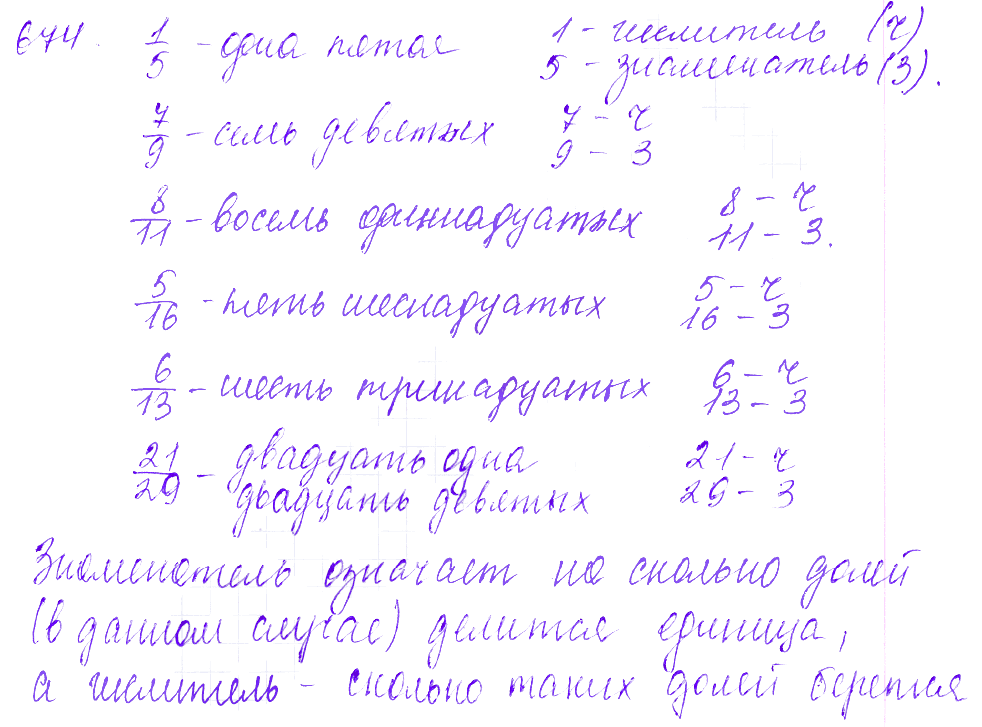 674. 1/5 - одна пятая 1 - числитель (ч)
5 - знаменатель (З).
7/9 - семь девятых 7 - ч
9 - З
8/11 - восемь одиннадцатых 8 - ч
11 - З.
5/16 - пять шеснадцатых 5 - ч
16 - З
6/13 - шесть тринадцатых 6 - ч
13 - З
21/29 - двадцать одна 21 - ч
двадцать девятых 29 - З
Знаменатель означает на сколько долей
(в данном случае) делится единица,
а числитель - сколько таких долей берется